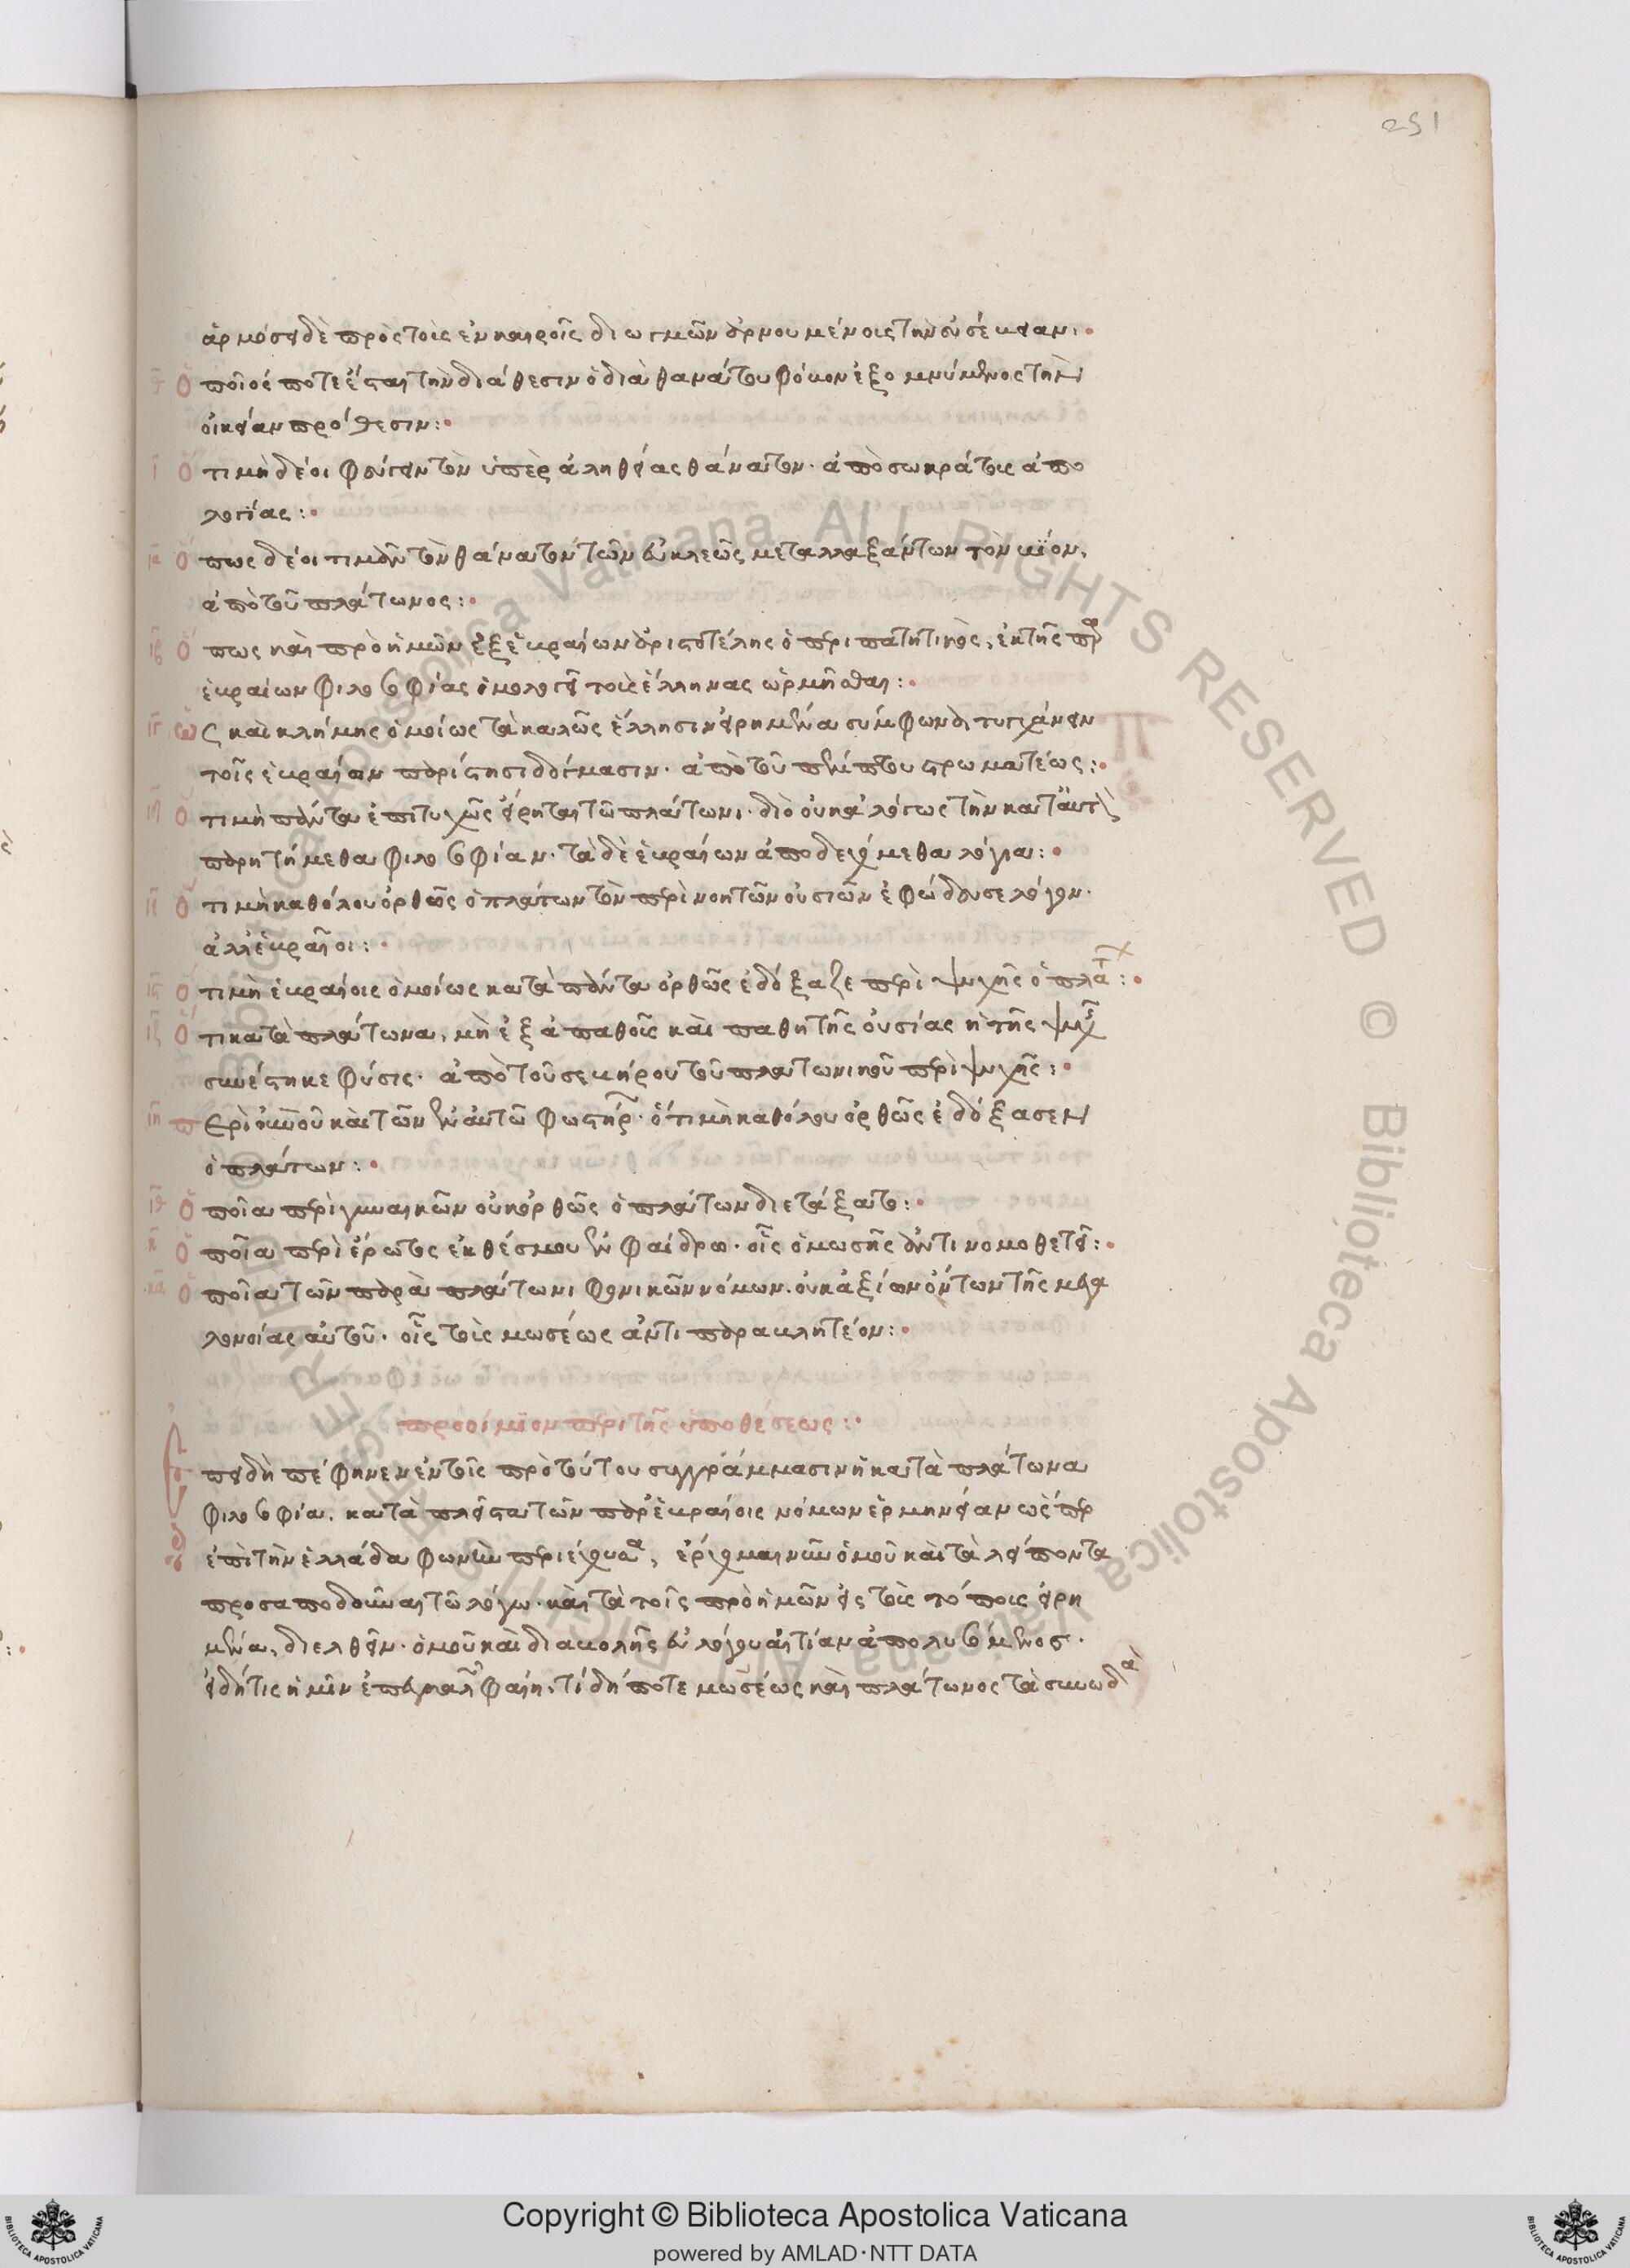 251
ἁρμόσει δὲ πρὸς τοὺς ἐν καιροῖς διωγμῶν ἀρνουμένοις τὴν εὐσέβειαν:
θ ὁποῖός ποτε ἔσται τὴν διάθεσιν ὁ διὰ θανάτου φόβον ἐξομνύμενος τὴν
οἰκείαν πρόθεσιν:
ι ὅτι μὴ δέοι φεύγειν τὸν ὑπὲρ ἀληθείας θάνατον. ἀπὸ σωκράτους ἀπο
λογίας:
ια ὅπως δέοι τιμᾶν τὸν θάνατον τῶν εὐκλεῶς μεταλλαξάντων τὸν βίον,
ἀπὸ τοῦ πλάτωνος:
ιβ ὅπως καὶ πρὸ ἡμῶν ἐξ ἑβραίων ἀριστοτέλης ὁ περιπατητικὸς, ἐκ τῆς παρ
ἑβραίων φιλοσοφίας ὁμολογεῖ τοὺς ἕλληνας ὡρμῆσθαι:
ιγ ὡς καὶ κλήμης ὁμοίως τὰ καλῶς ἕλλησιν εἰρημένα σύμφωνα τυγχάνειν
τοῖς ἑβραίων παρίστησι δόγμασιν. ἀπὸ τοῦ πέμπτου στρωματέως:
ιδ ὅτι μὴ πάντα ἐπιτυχῶς εἴρηται τῷ πλάτωνι. διὸ οὐκ ἀλόγως τὴν κατ' αὐτὸν
παρῃτήμεθα φιλοσοφίαν. τὰ δὲ ἑβραίων ἀποδεχόμεθα λόγια:
ιε ὅτι μὴ καθόλου ὀρθῶς ὁ πλάτων τὸν περὶ νοητῶν οὐσιῶν ἐφώδευσε λόγον.
ἀλλ' ἑβραῖοι:
ιϛ ὅτι μὴ ἑβραίοις ὁμοίως κατὰ πάντα ὀρθῶς ἐδόξαζε περὶ ψυχῆς ὁ πλάτ:
ιζ ὅτι κατὰ πλάτωνα, μὴ ἐξ ἀπαθοῦς καὶ παθητῆς οὐσίας ἡ τῆς ψυχῆς
συνέστηκε φύσις. ἀπὸ τοῦ σεβήρου τοῦ πλατωνικοῦ περὶ ψυχῆς:
ιη περὶ οὐρανοῦ καὶ τῶν ἐν αὐτῷ φωστήρ. ὅτι μὴ καθόλου ὀρθῶς ἐδόξασεν
ὁ πλάτων:
ιθ ὁποῖα περὶ γυναικῶν οὐκ ὀρθῶς ὁ πλάτων διετάξατο:
κ ὁποῖα περὶ ἔρωτος ἐκθέσμου ἐν φαίδρῳ. οἷς ὁ μωσῆς ἀντινομοθετεῖ:
κα ὁποῖα τῶν παρὰ πλάτωνι φονικῶν νόμων. οὐκ ἀξίων ὄντων τῆς μεγα
λονοίας αὐτοῦ. οἷς τοὺς μωσέως ἀντιπαραβλητέον:
προοίμιον περὶ τῆς ὑποθέσεως:
Ἐπειδὴ πέφηνεν ἐν τοῖς πρὸ τούτου συγγράμμασιν ἡ κατὰ πλάτωνα
φιλοσοφία, κατὰ πλεῖστα τῶν παρ' ἑβραίοις νόμων ἑρμηνείαν ὥσπερ
ἐπὶ τὴν ἑλλάδα φωνὴν περιέχουσα, ἔρχομαι νῦν ὁμοῦ καὶ τὰ λείποντα
προσαποδοῦναι τῷ λόγῳ. καὶ τὰ τοῖς πρὸ ἡμῶν εἰς τοὺς τόπους εἰρη
μένα, διελθεῖν. ὁμοῦ καὶ διαβολῆς εὐλόγου αἰτίαν ἀπολυσόμενος.
εἰ δή τις ἡμῖν ἐπεγκαλῶν φαίη, τί δήποτε μωσέως καὶ πλάτωνος τὰ συνῳδὰ
Copyright © Biblioteca Apostolica Vaticana
powered by AMLAD·NTT DATA